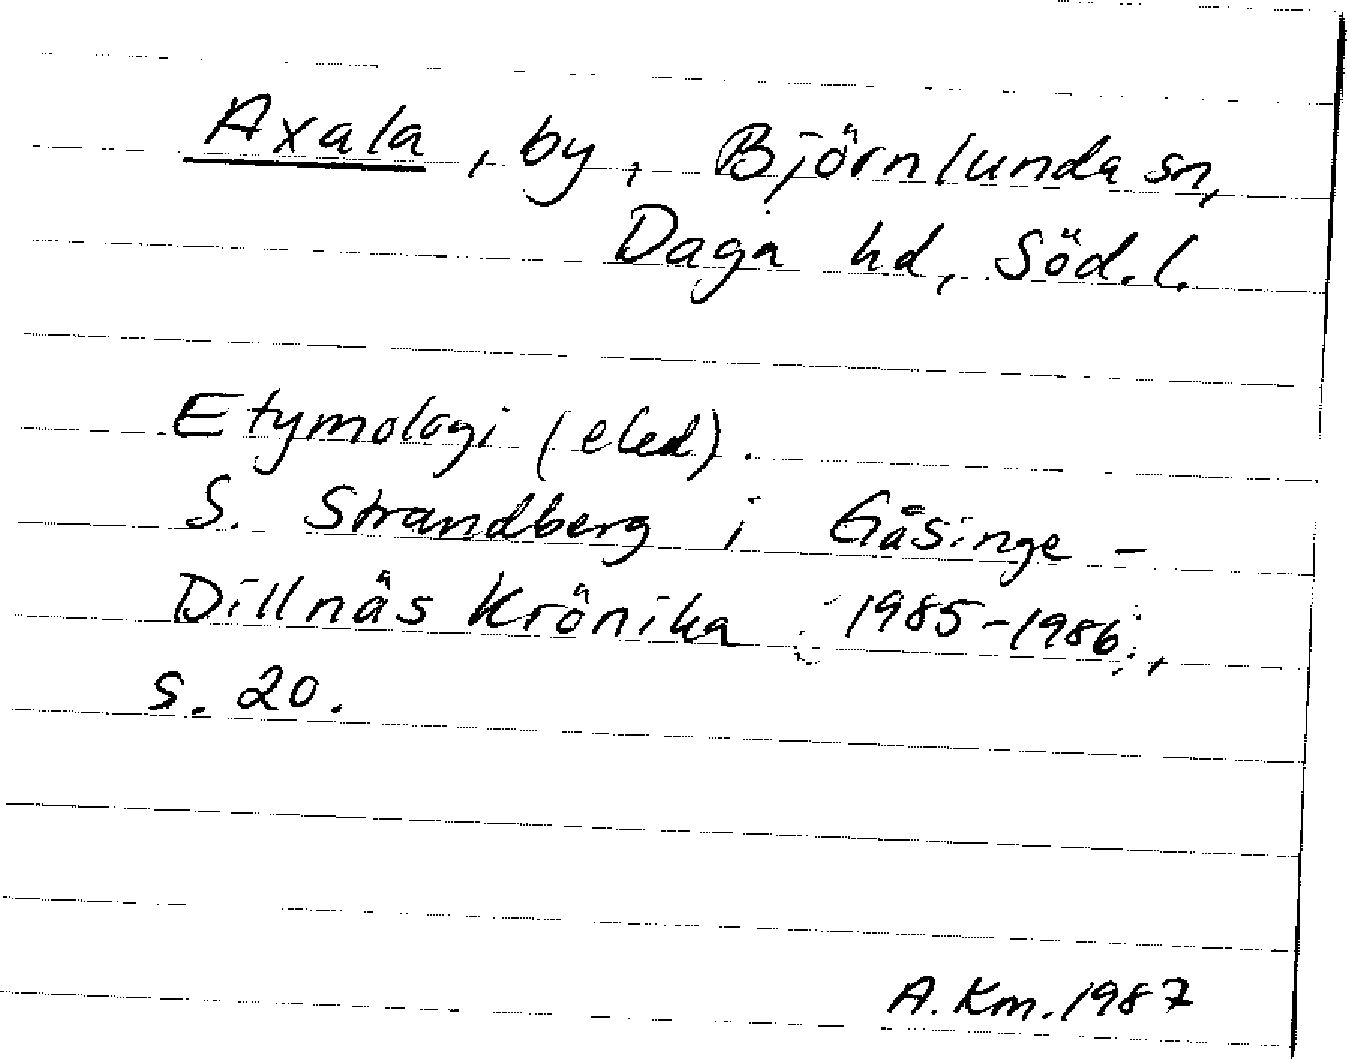 Axala, by, Björnlunda sn,
Daga hd, Söd.l.
Etymologi (eled).
S. Strandberg i Gåsinge -
Dillnäs Krönika 1985-1986,
s. 20.
A. Km. 1987